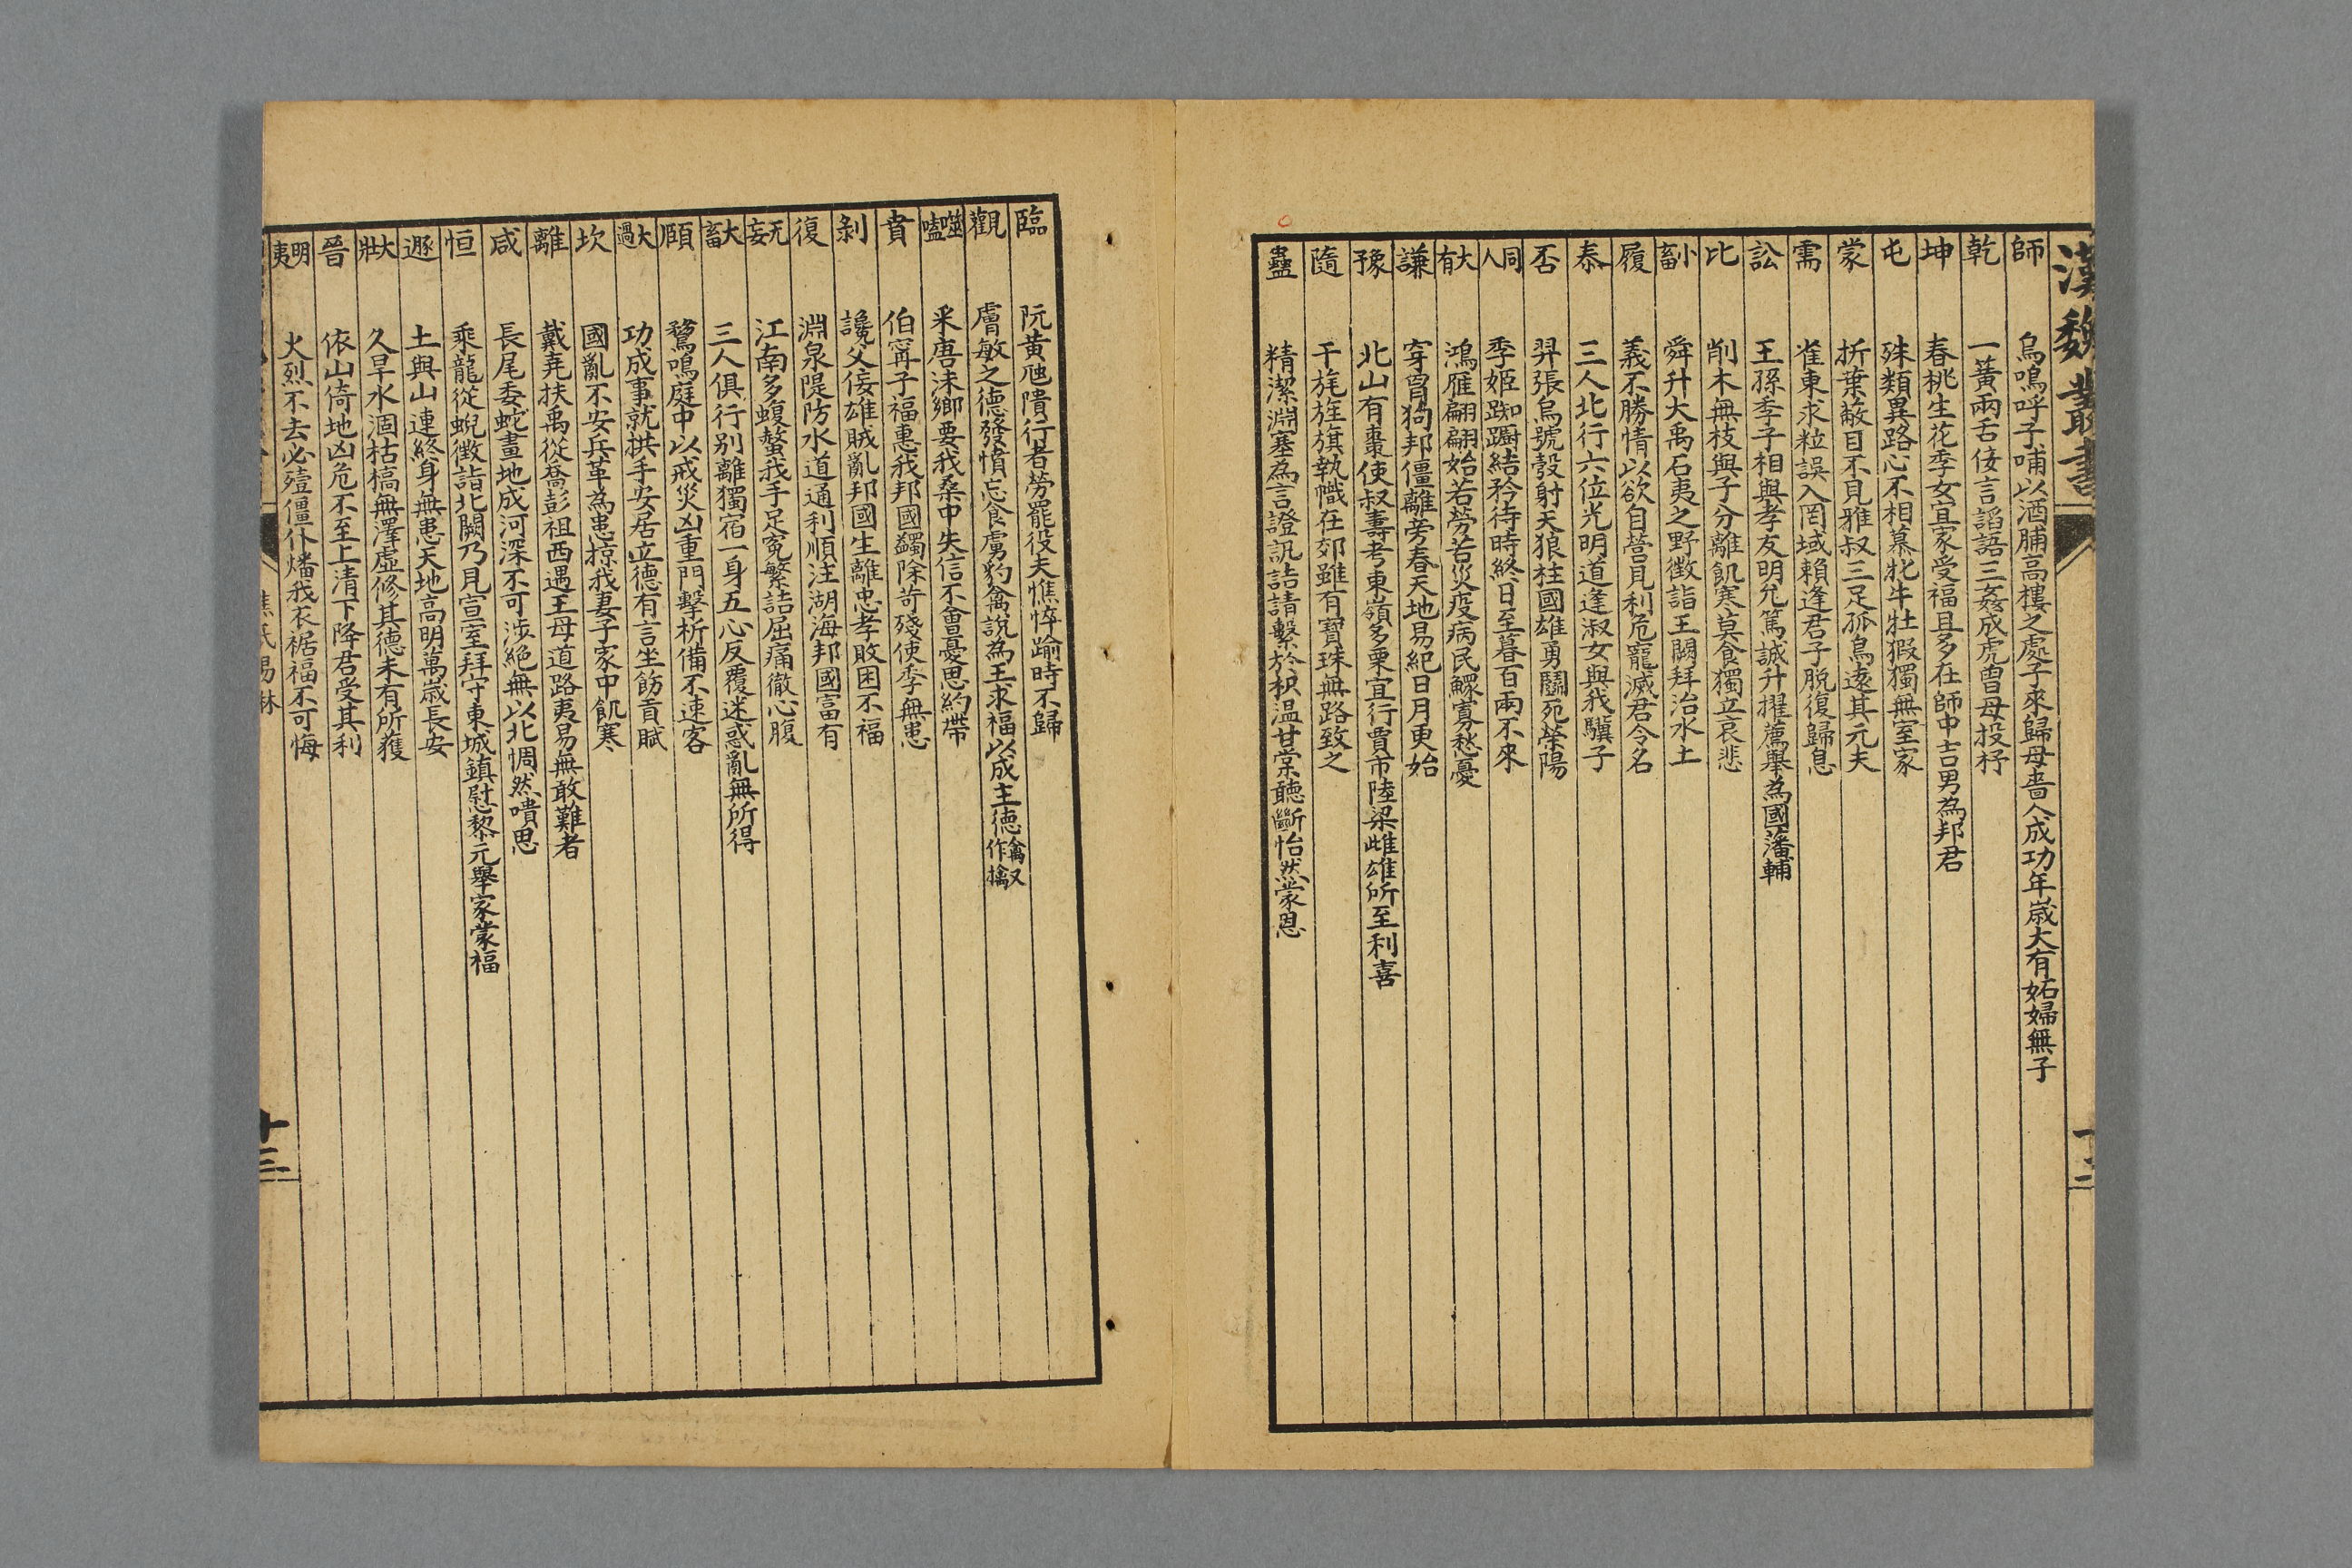 漢魏叢書
師 烏鳴呼子哺以酒脯高樓之處子來歸母嗇人成功年歲大有妬婦無子
乾 一簧兩舌佞言謟語三姦成虎曾母投杼
坤 春桃生花季女宜家受福且多在師中吉男為邦君
屯 殊類異路心不相慕牝牛牡猳獨無室家
蒙 折葉蔽目不見稚叔三足孤烏遠其元夫
需 雀東求粒誤入罔域賴逢君子脫復歸息
訟 王孫季子相與孝友明允篤誠升擢薦舉為國藩輔
比 削木無枝與子分離飢寒莫食獨立哀悲
小畜 舜升大禹石夷之野徵詣王闕拜治水土
履 義不勝情以欲自營見利危寵滅君令名
泰 三人北行六位光明道逢淑女與我驥子
否 羿張烏號彀射天狼柱國雄勇鬬死滎陽
同人 季姬踟躕結矜待時終日至暮百兩不來
大有 鴻雁翩翩始若勞苦災疫病民鰥寡愁憂
謙 穿胷狗邦僵離旁春天地易紀日月更始
豫 北山有棗使叔壽考東嶺多栗宜行賈市陸梁雌雄所至利喜
隨 干旄旌旗執幟在郊雖有寶珠無路致之
蠱 精潔淵塞為言證訊詰請繫於枳溫甘棠聽斷怡然蒙恩
十二
臨 阮黃虺隤行者勞罷役夫憔悴踰時不歸
觀 膚敏之德發憤忘食虜豹禽說為王求福以成主德禽又作擒
噬嗑 采唐沬鄉要我桑中失信不會憂思約帶
賁 伯甯子福惠我邦國蠲除苛殘使季無患
剝 讒父佞雄賊亂邦國生離忠孝敗困不福
復 淵泉隄防水道通利順注湖海邦國富有
无妄 江南多蝮螫我手足冤繁詰屈痛徹心腹
大畜 三人俱行別離獨宿一身五心反覆迷惑亂無所得
頤 鵞鳴庭中以戒災凶重門擊柝備不速客
大過 功成事就拱手安居立德有言坐飭貢賦
坎 國亂不安兵革為患掠我妻子家中飢寒
離 戴堯扶禹從喬彭祖西遇王母道路夷易無敢難者
咸 長尾委蛇畫地成河深不可涉絕無以北惆然嘳思
恒 乘龍從蜺徵詣北闕乃見宣室拜守東城鎮慰黎元舉家蒙福
遯 土與山連終身無患天地高明萬歲長安
大壯 久旱水涸枯槁無澤虛修其德未有所獲
晉 依山倚地凶危不至上清下降君受其利
明夷 火烈不去必殪僵仆燔我衣裾福不可悔
焦氏易林
十三